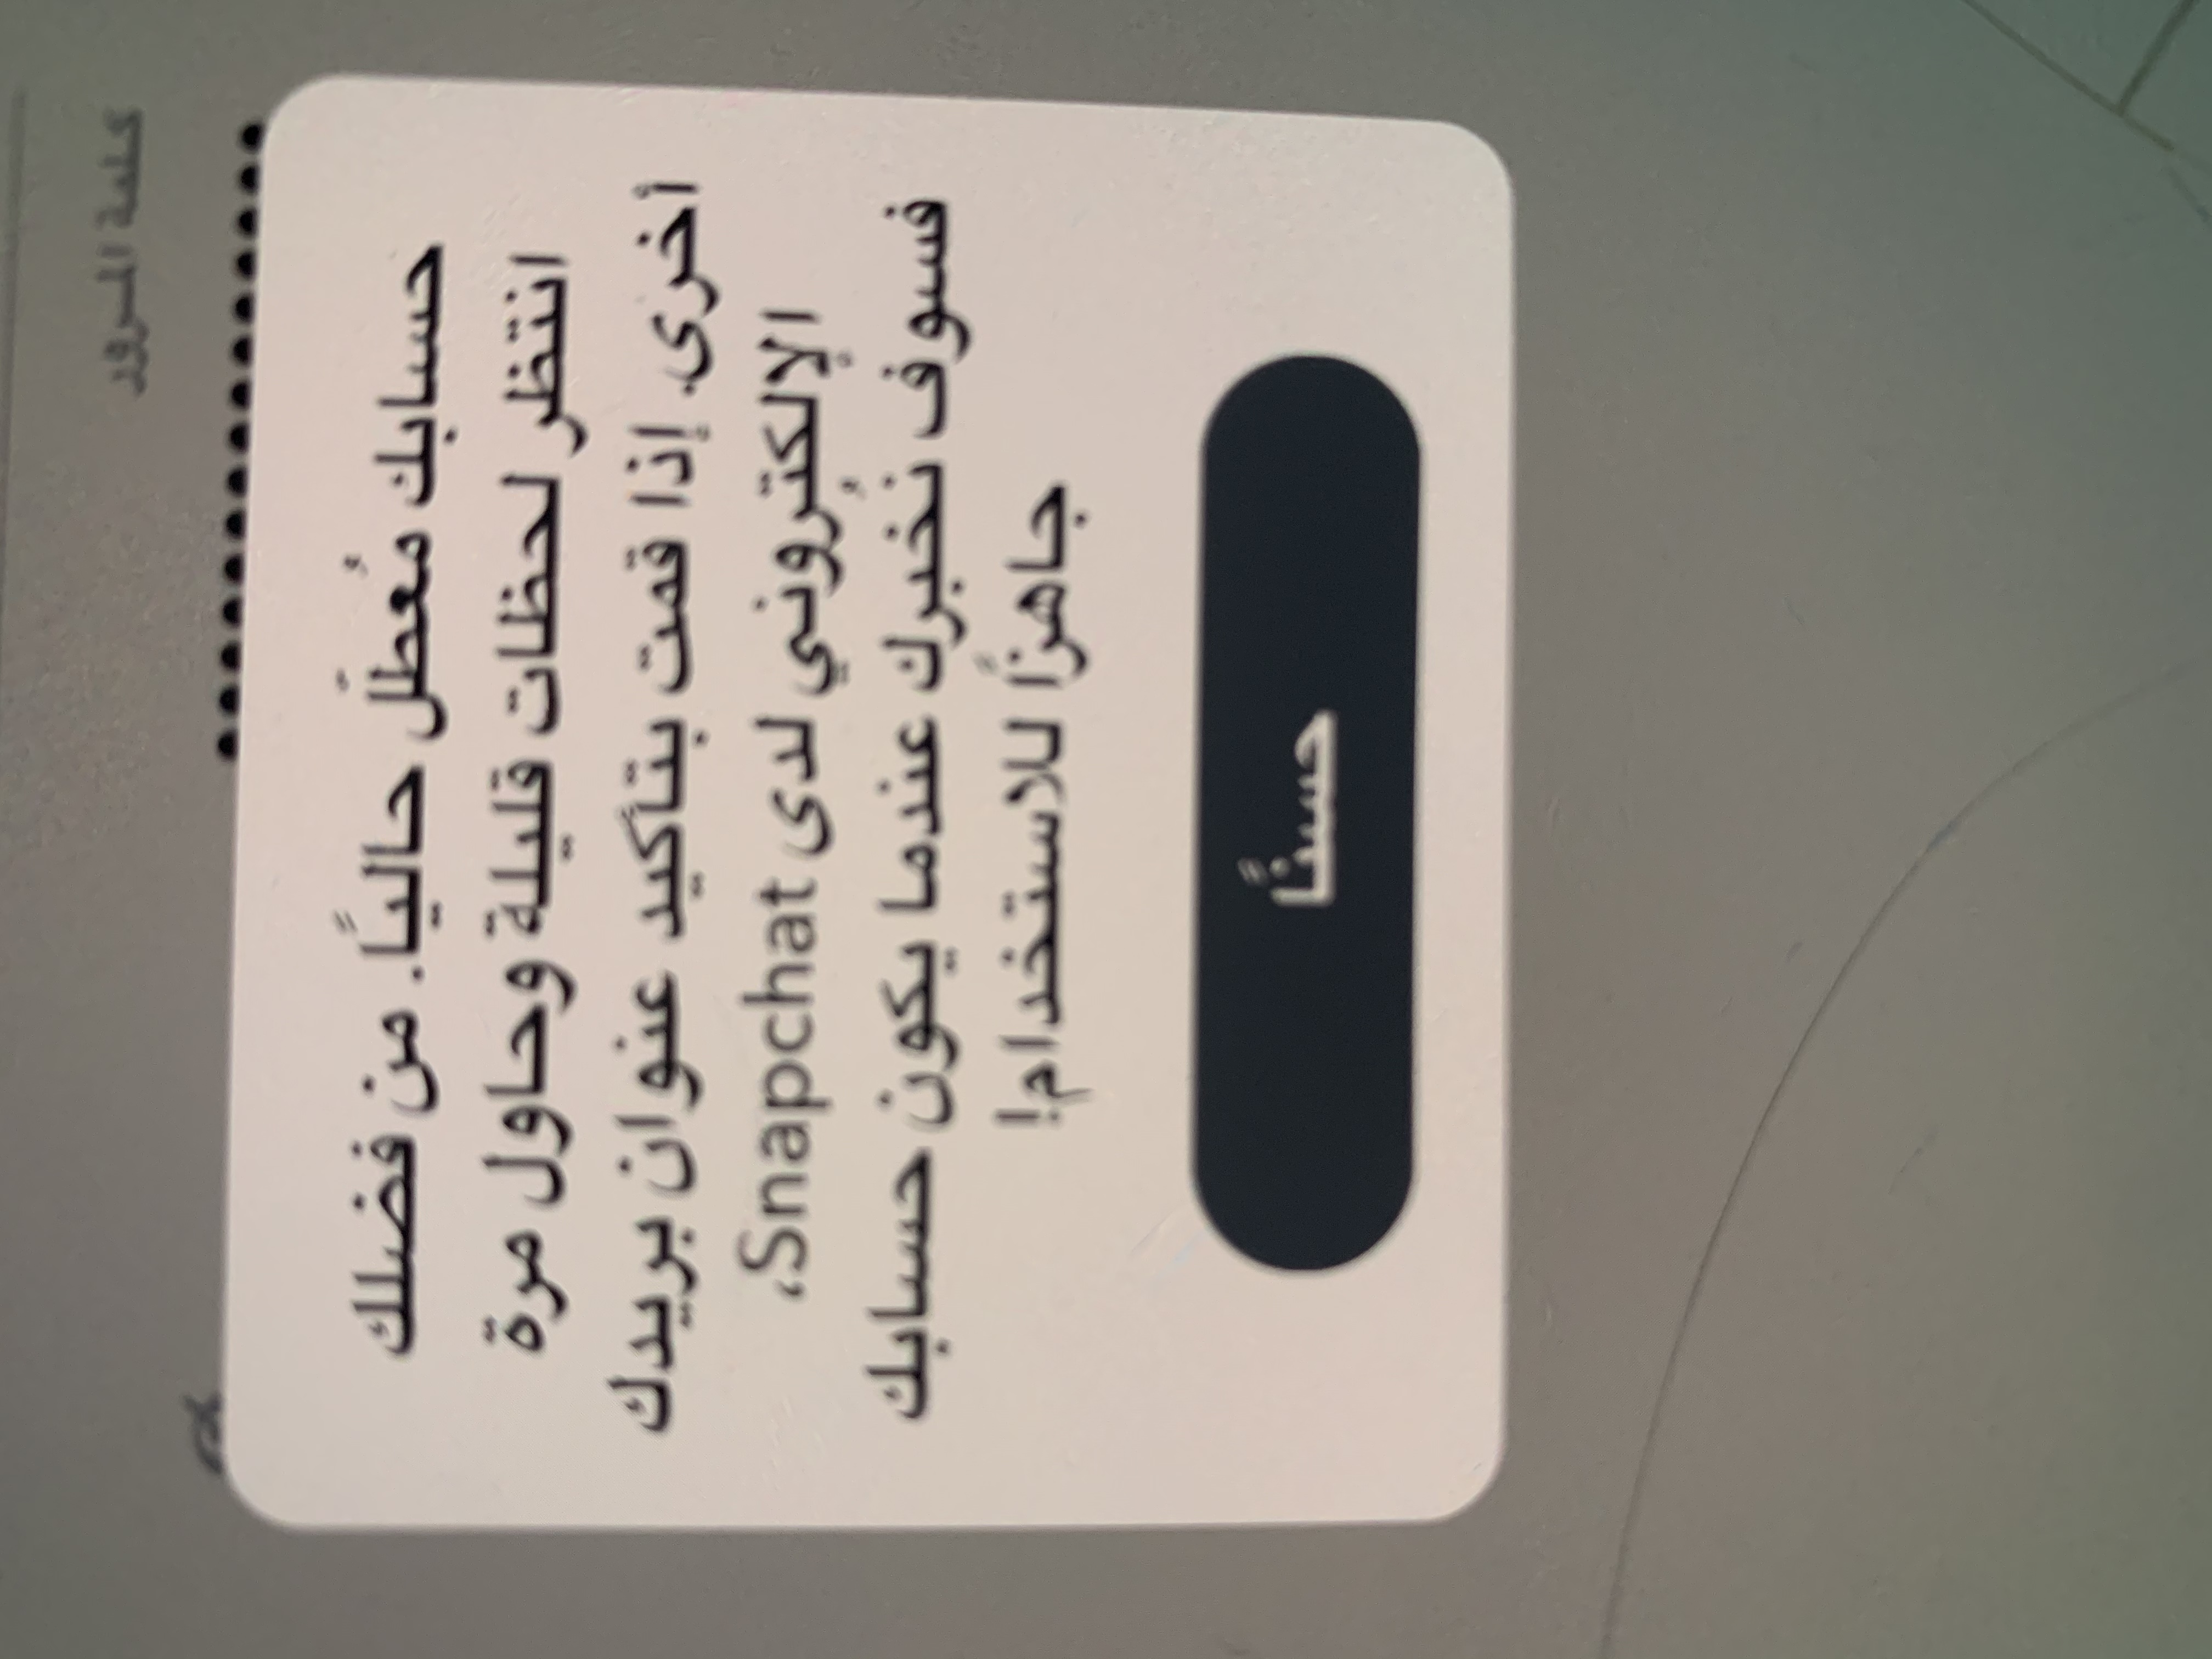 كلمة المرور
حسابك مُعطّل حالياً. من فضلك
انتظر لحظات قليلة وحاول مرة
أخرى. إذا قمت بتأكيد عنوان بريدك
الإلكتُروني لدى Snapchat،
فسوف نخبرك عندما يكون حسابك
جاهزاً للاستخدام!
حسناً